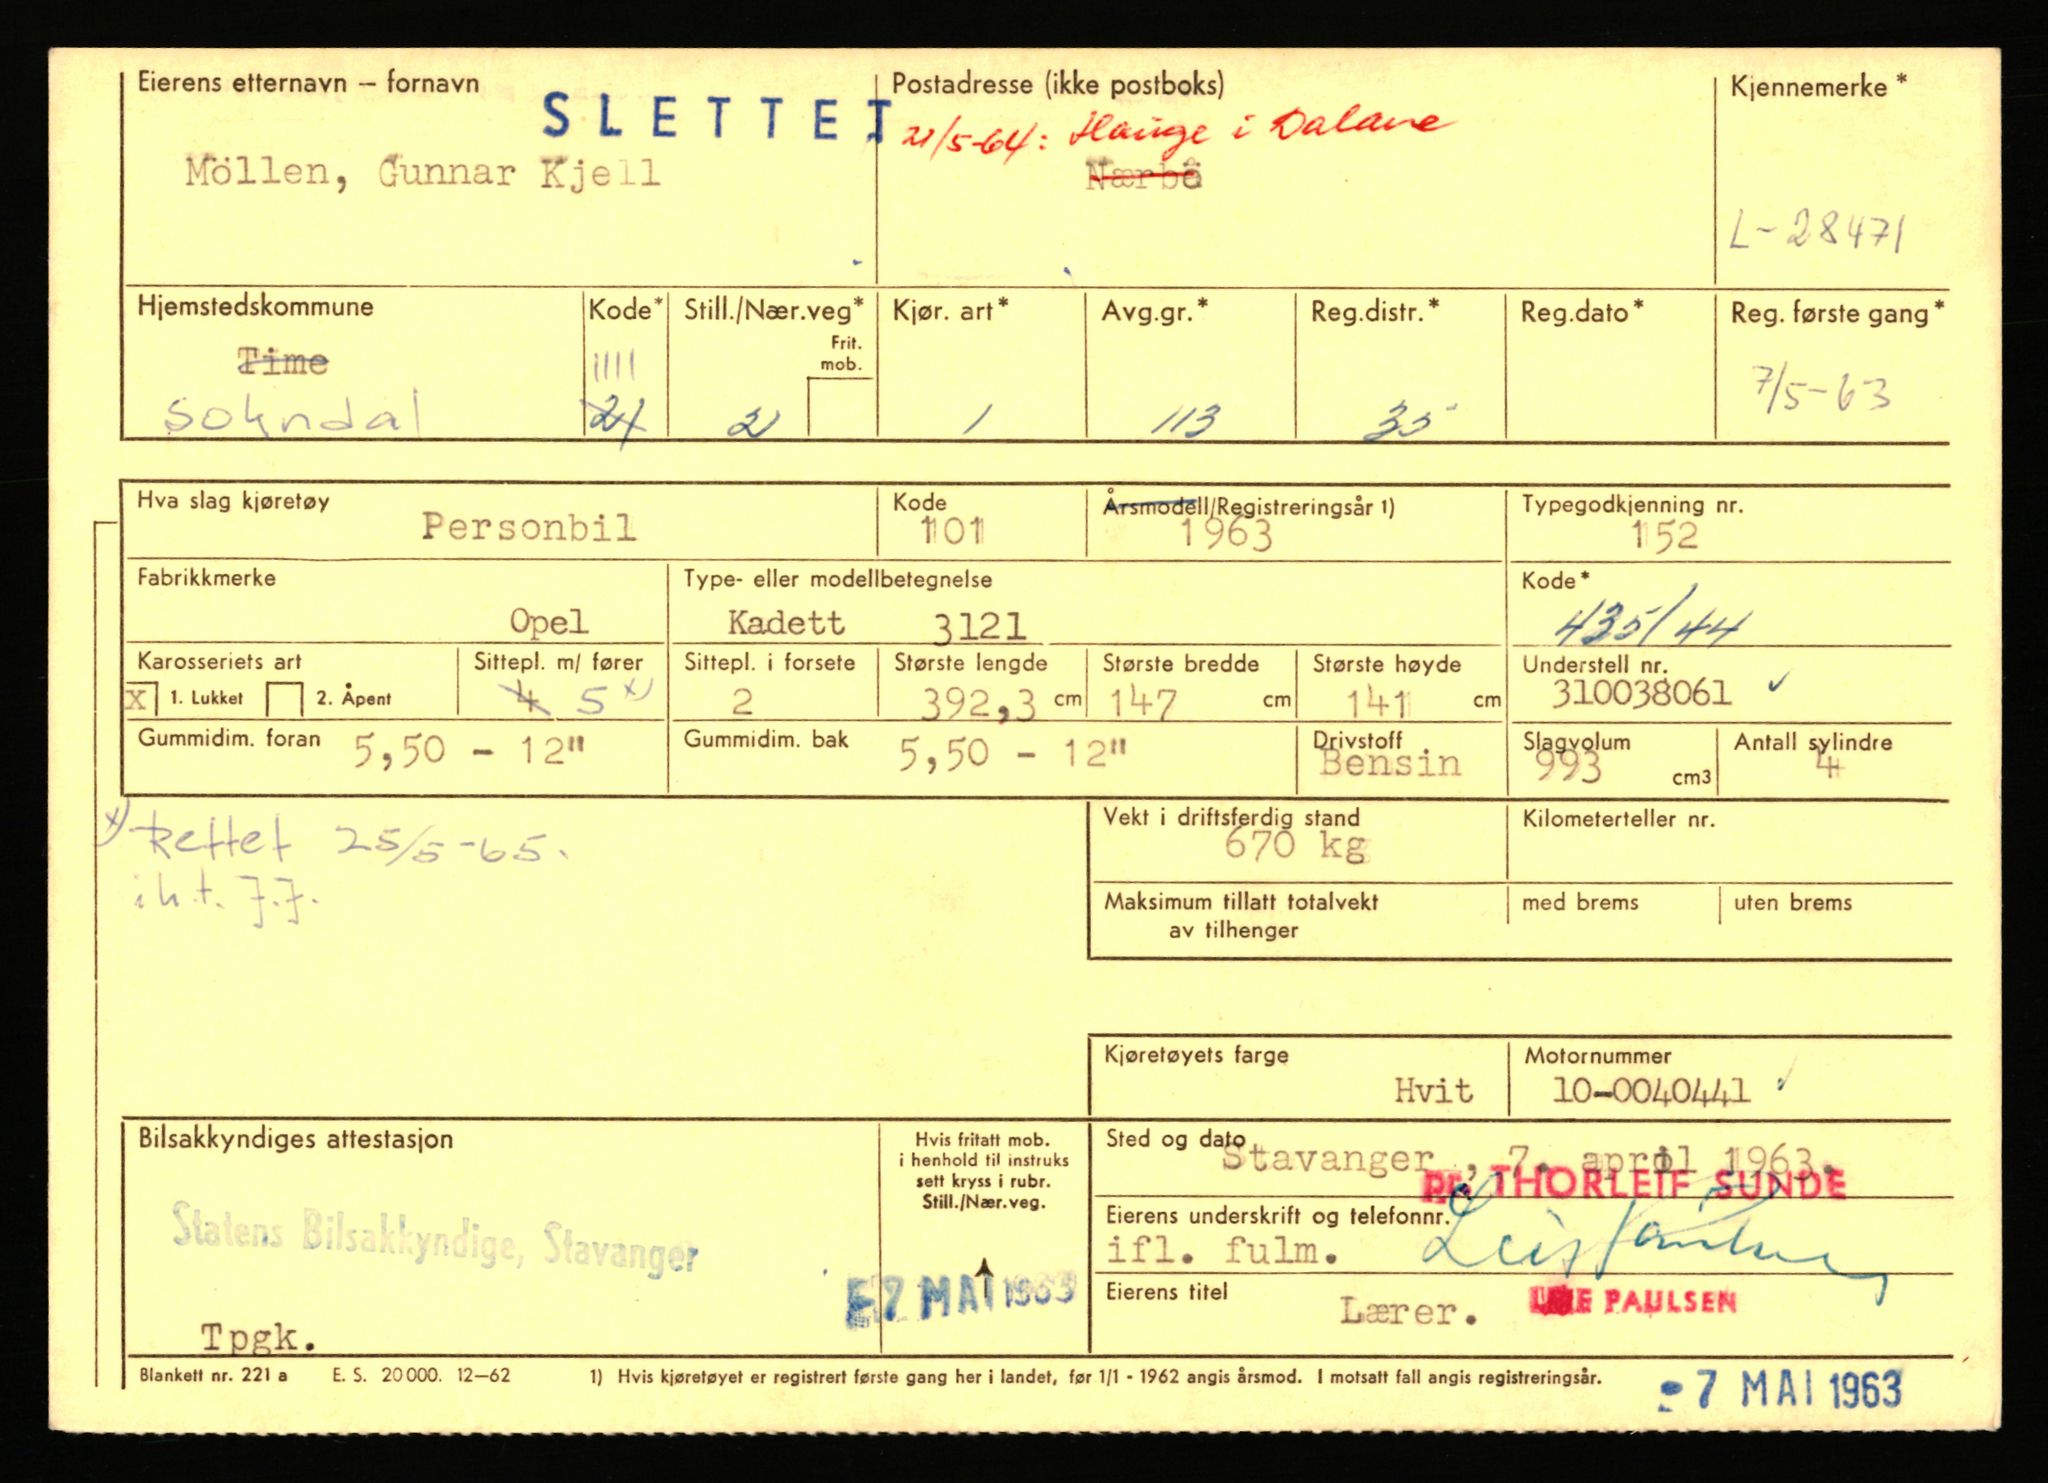 Eierens etternavn – fornavn
SLETTET
Postadresse (ikke postboks)
Kjennemerke *
21/5-64: Hauge i Dalane
Möllen, Gunnar Kjell
Nærbö
L-28471
Hjemstedskommune
Kode*
Still./Nær.veg*
Kjør. art*
Avg.gr.*
Reg.distr.*
Reg.dato*
Reg. første gang*
Frit.
mob.
Time
1111
7/5-63
Sokndal
21
2
1
113
35
Hva slag kjøretøy
Kode
Årsmodell/Registreringsår 1)
Typegodkjenning nr.
Personbil
101
1963
152
Fabrikkmerke
Type- eller modellbetegnelse
Kode*
Opel
Kadett 3121
435/44
Karosseriets art
Sittepl. m/ fører
Sittepl. i forsete
Største lengde
Største bredde
Største høyde
Understell nr.
X 1. Lukket
2. Åpent
4 5 x)
2
392,3 cm
147 cm
141 cm
310038061
Gummidim. foran 5,50 - 12"
Gummidim. bak 5,50 - 12"
Drivstoff
Bensin
Slagvolum
993 cm3
Antall sylindre
4
x) Rettet 25/5-65.
i h.t. J.J.
Vekt i driftsferdig stand
670 kg
Kilometerteller nr.
Maksimum tillatt totalvekt
av tilhenger
med brems
uten brems
Kjøretøyets farge
Motornummer
Hvit
10-0040441
Bilsakkyndiges attestasjon
Hvis fritatt mob.
i henhold til instruks
sett kryss i rubr.
Still./Nær.veg.
Sted og dato
Stavanger, 7. april 1963.
pp. THORLEIF SUNDE
Statens Bilsakkyndige, Stavanger
Eierens underskrift og telefonnr.
ifl. fulm.
E7 MAI 1963
Eierens titel
Lærer.
PAULSEN
Tpgk.
Blankett nr. 221 a E. S. 20 000. 12–62
1) Hvis kjøretøyet er registrert første gang her i landet, før 1/1 - 1962 angis årsmod. I motsatt fall angis registreringsår.
-7 MAI 1963